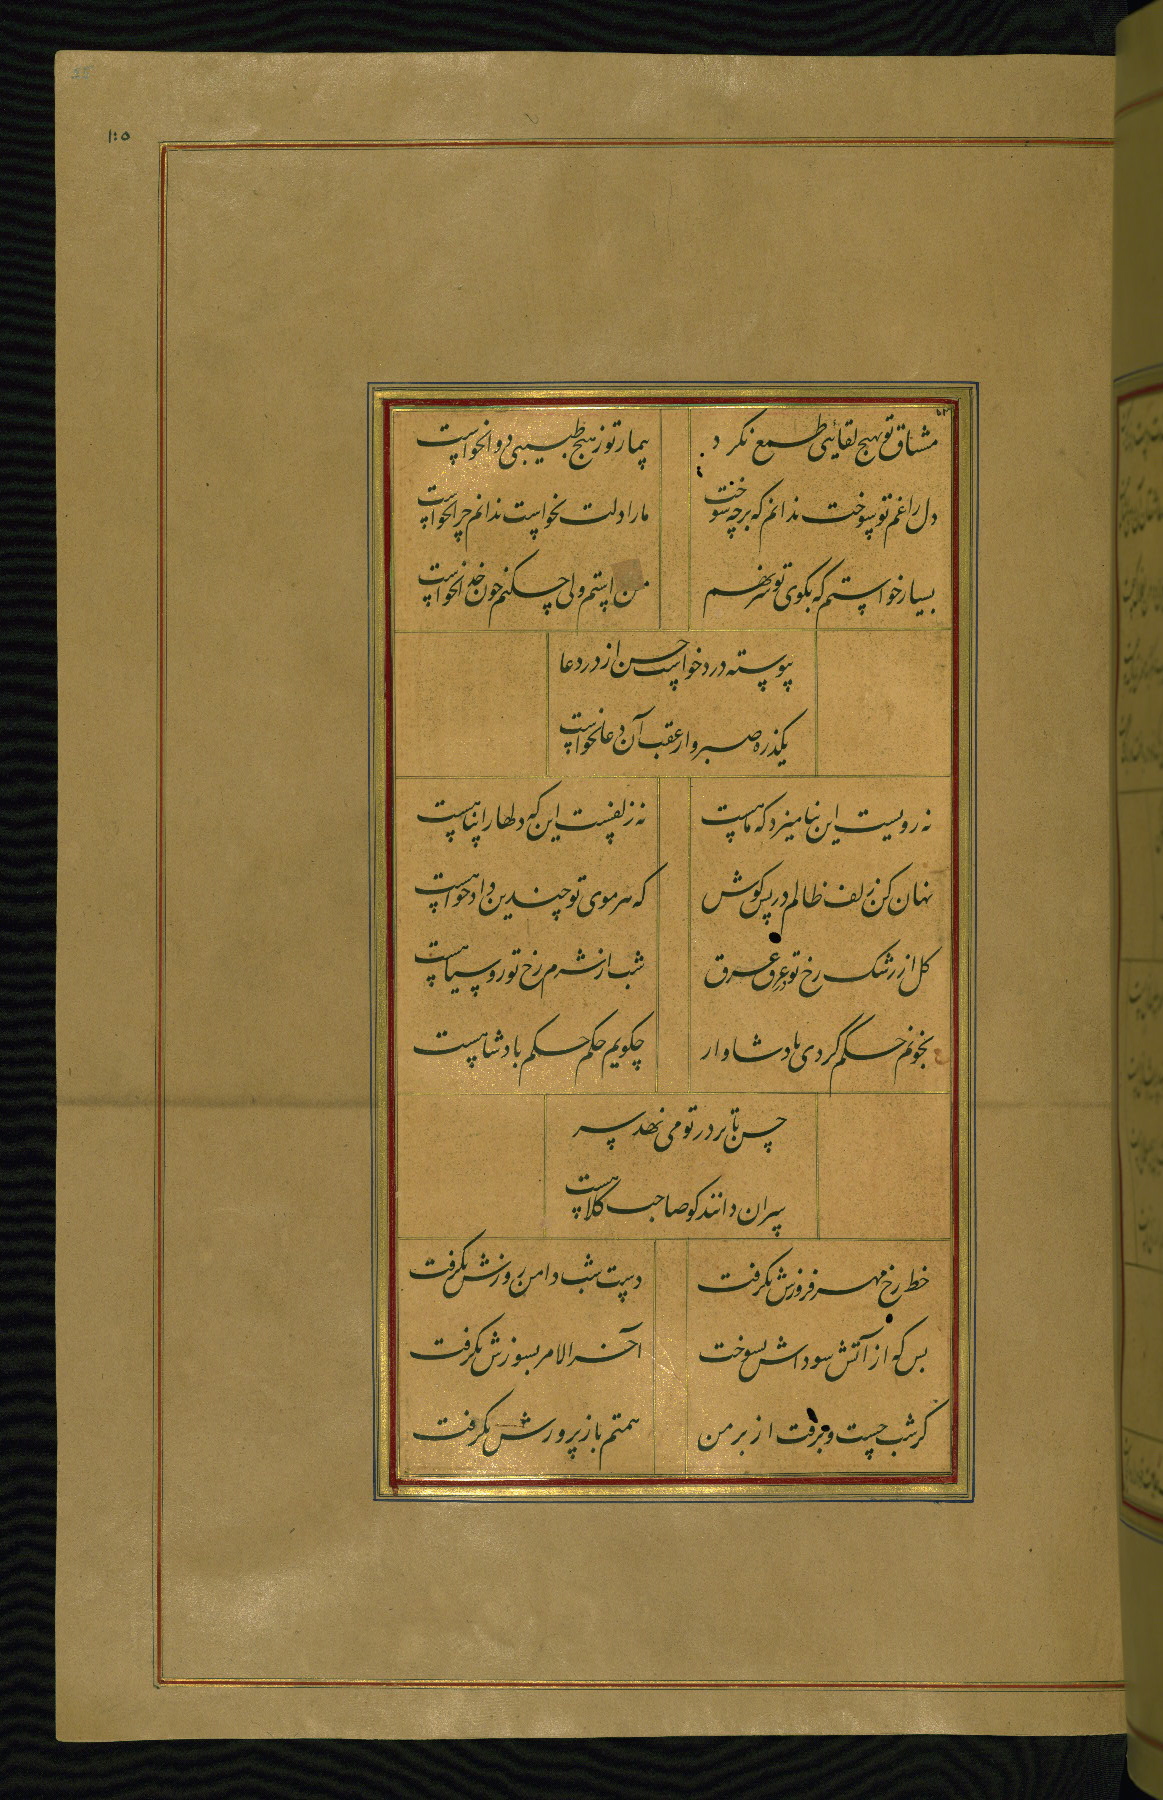 ۱۰۵
۵۲
مشتاق تو بهیچ لقایی طمع نکرد
بیمار تو ز هیچ طبیبی دوا نخواست
دل را غم تو سوخت ندانم که بر چه سوخت
ما را دلت نخواست ندانم چرا نخواست
بسیار خواستم که بکوی تو سر نهم
من خواستم ولی چکنم چون خدا نخواست
پیوسته درد خواست حسن از در دعا
یکذره صبر و از عقب آن دعا نخواست
نه رویست این بنامیزد که ماهست
نه زلفست این که دلها را پناهست
نهان کن زلف ظالم در پس کوش
که هر موی تو چندین دادخواهست
کل از رشک رخ تو در عرق غرق
شب از شرم رخ تو رو سیاهست
بخونم حکم کردی پادشاوار
چکویم حکم حکم پادشاهست
حسن تا بر در تو می نهد سر
سران دانند کو صاحب کلاهست
خط رخ مهر فروزش بگرفت
دست شب دامن روزش بگرفت
بس که از آتش سوداش بسوخت
آخر الامر بسوزش بگرفت
کر شب جست و برفت از بر من
همتم باز بروزش بگرفت